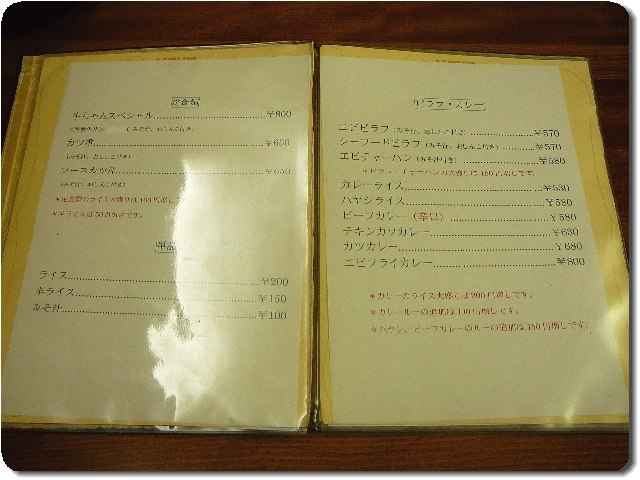 定食類
牛ちゃんスペシャル ¥800
(みそ汁、おしんこ付き)
カツ煮 ¥650
(みそ汁、おしんこ付き)
ソースカツ丼 ¥650
(みそ汁、おしんこ付き)
*定食類のライス大盛りは100円増し
*半ライスは50円引きです。
単品
ライス ¥200
半ライス ¥150
みそ汁 ¥100
ピラフ・カレー
エビピラフ (みそ汁、おしんこ付き) ¥570
シーフードピラフ (みそ汁、おしんこ付き) ¥570
エビチャーハン (みそ汁付き) ¥580
*ピラフ・チャーハンの大盛りは150円増しです。
カレーライス ¥530
ハヤシライス ¥580
ビーフカレー(辛口) ¥580
チキンカツカレー ¥630
カツカレー ¥680
エビフライカレー ¥800
*カレーのライス大盛りは200円増しです。
*カレールーの追加は100円増しです。
*ハヤシ、ビーフカレーのルーの追加は150円増しです。